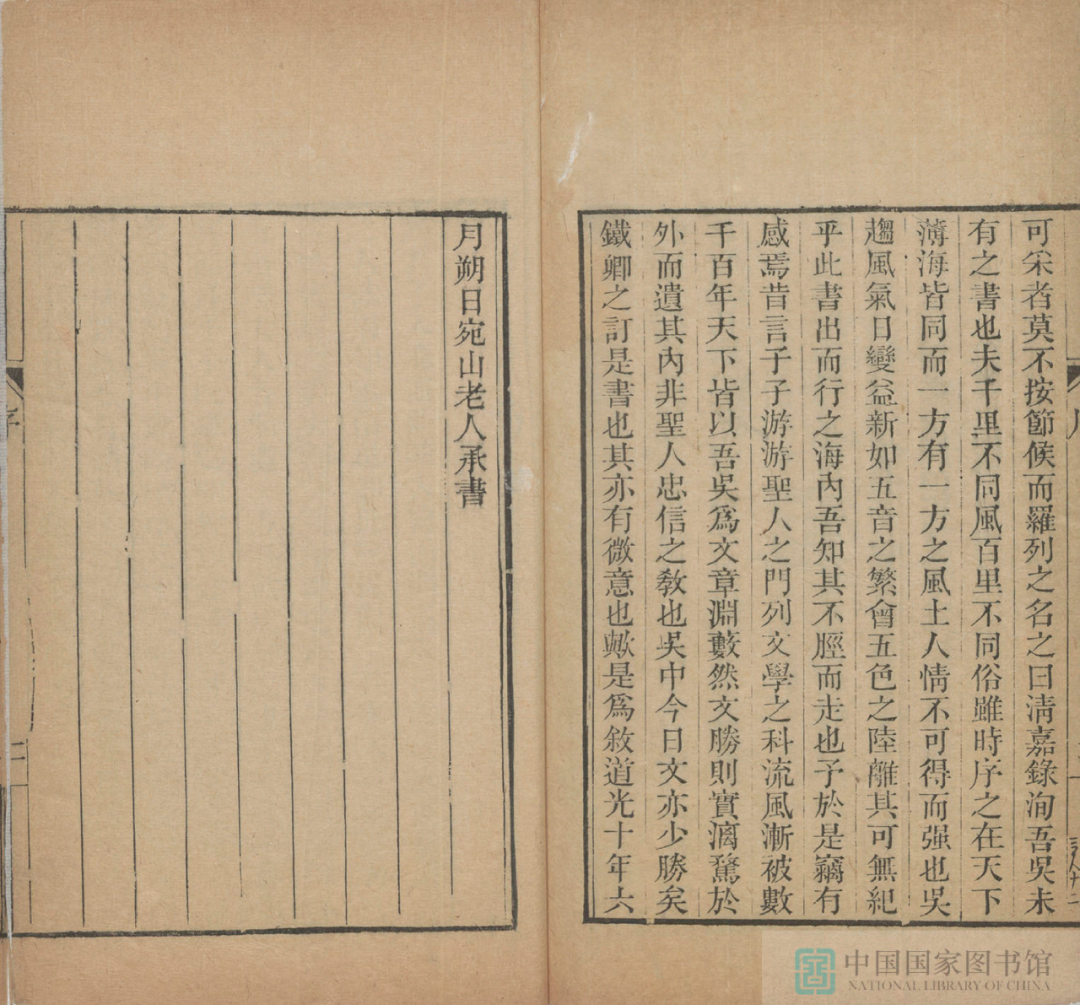 可采者莫不按節候而羅列之名之曰淸嘉錄洵吾吳未
有之書也夫千里不同風百里不同俗雖時序之在天下
薄海皆同而一方有一方之風土人情不可得而强也吳
趨風氣日變益新如五音之繁會五色之陸離其可無紀
乎此書出而行之海內吾知其不脛而走也予於是竊有
感焉昔言子子游游聖人之門列文學之科流風漸被數
千百年天下皆以吾吳爲文章淵藪然文勝則實漓騖於
外而遺其內非聖人忠信之敎也吳中今日文亦少勝矣
鐵卿之訂是書也其亦有微意也歟是爲敘道光十年六
月朔日宛山老人承書
序
二
中国国家图书馆
NATIONAL LIBRARY OF CHINA